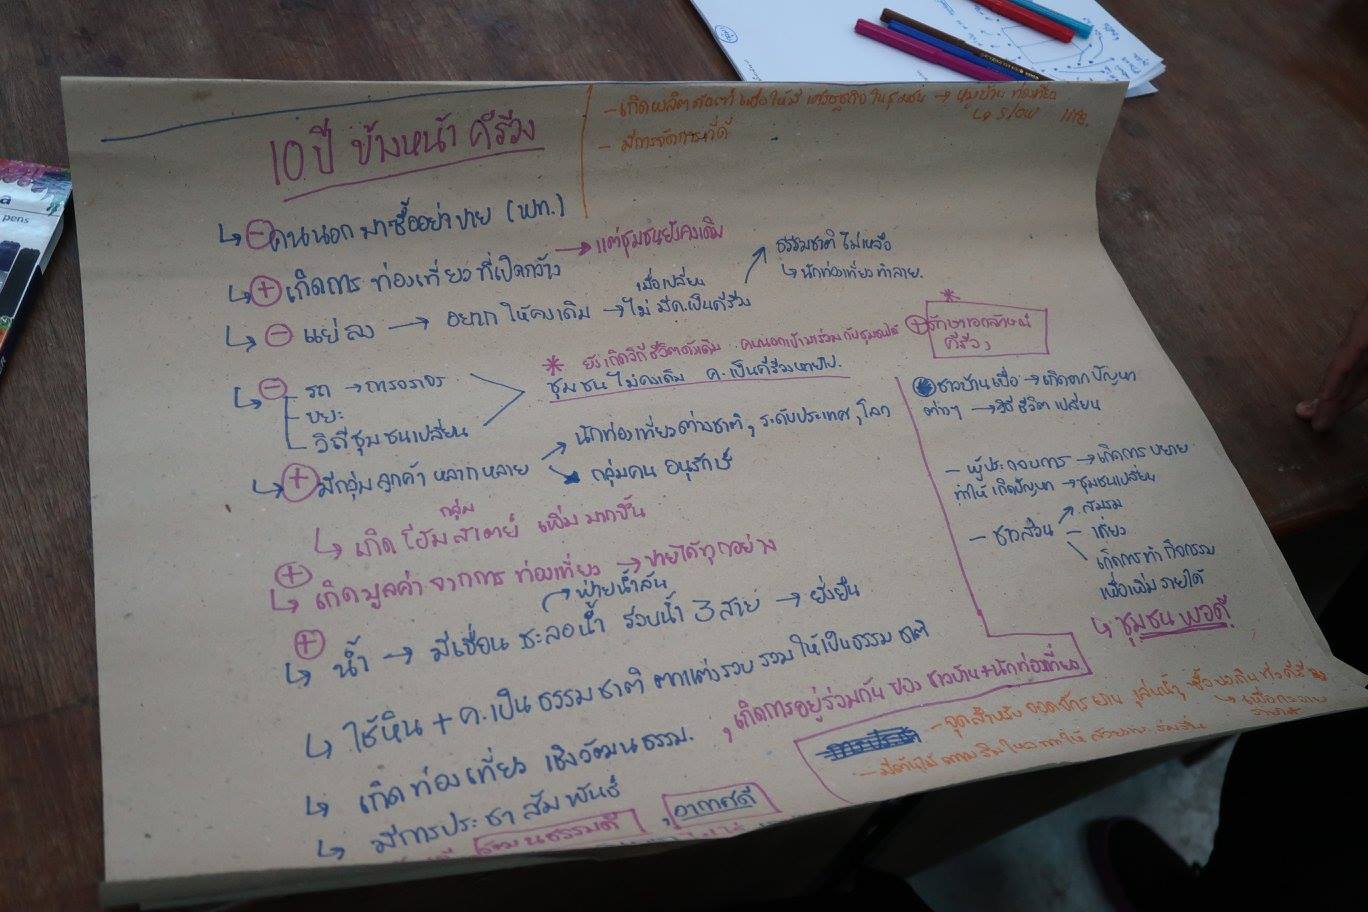 10 ปี ข้างหน้า คีรีวง
- เกิดผลิตภัณฑ์ เพื่อให้มี เศรษฐกิจ ในชุมชน → หมู่บ้าน ท่องเที่ยว
↳ slow life.
- มีการจัดการที่ดี
↳ ⊖ คนนอก มาซื้ออย่าขาย (พท.)
↳ ⊕ เกิดการ ท่องเที่ยวที่เปิดกว้าง → แต่ชุมชนยังคงเดิม
↳ ⊖ แย่ลง → อยากให้คงเดิม → ไม่มีค.เป็นคีรีวง
เมื่อเปลี่ยน
ธรรมชาติ ไม่เหลือ
↳ นักท่องเที่ยว ทำลาย.
↳ ⊖ รถ → การจราจร
ขยะ
วิถีชุมชนเปลี่ยน
* ยังเกิดวิถีชีวิตดั้งเดิม คนนอกเข้ามาร่วมกับชุมชนได้
ชุมชนไม่คงเดิม ค.เป็นคีรีวงหายไป.
* ⊕ รักษาเอกลักษณ์
คีรีวง
↳ ⊕ มีกลุ่มลูกค้า หลากหลาย
นักท่องเที่ยวต่างชาติ, ระดับประเทศ, โลก
กลุ่มคน อนุรักษ์
↳ เกิด โฮมสเตย์ เพิ่มมากขึ้น
กลุ่ม
⊕ ↳ เกิดมูลค่า จากการ ท่องเที่ยว → ขายได้ทุกอย่าง
⊕ ↳ น้ำ → มีเขื่อน ชะลอน้ำ รวบน้ำ 3 สาย → ยั่งยืน
→ ฝายน้ำล้น
↳ ใช้หิน + ค.เป็นธรรมชาติ ตกแต่งรวบรวมให้เป็นธรรมชาติ
↳ เกิดท่องเที่ยว เชิงวัฒนธรรม.
, เกิดการอยู่ร่วมกัน ของ ชาวบ้าน+นักท่องเที่ยว
↳ มีการประชาสัมพันธ์
วัฒนธรรมดี , อากาศดี
ชาวบ้านเบื่อ → เกิดจากปัญหา
ต่างๆ → วิถีชีวิตเปลี่ยน
- ผู้ประกอบการ → เกิดการขยาย
ทำให้เกิดปัญหา → ชุมชนเปลี่ยน
- ชาวสวน
สมรม
เดี่ยว
เกิดการทำ กิจกรรม
เพื่อเพิ่มรายได้
↳ ชุมชน พอดี
- จุดสำหรับ จอดจักรยาน, เล่นน้ำ,